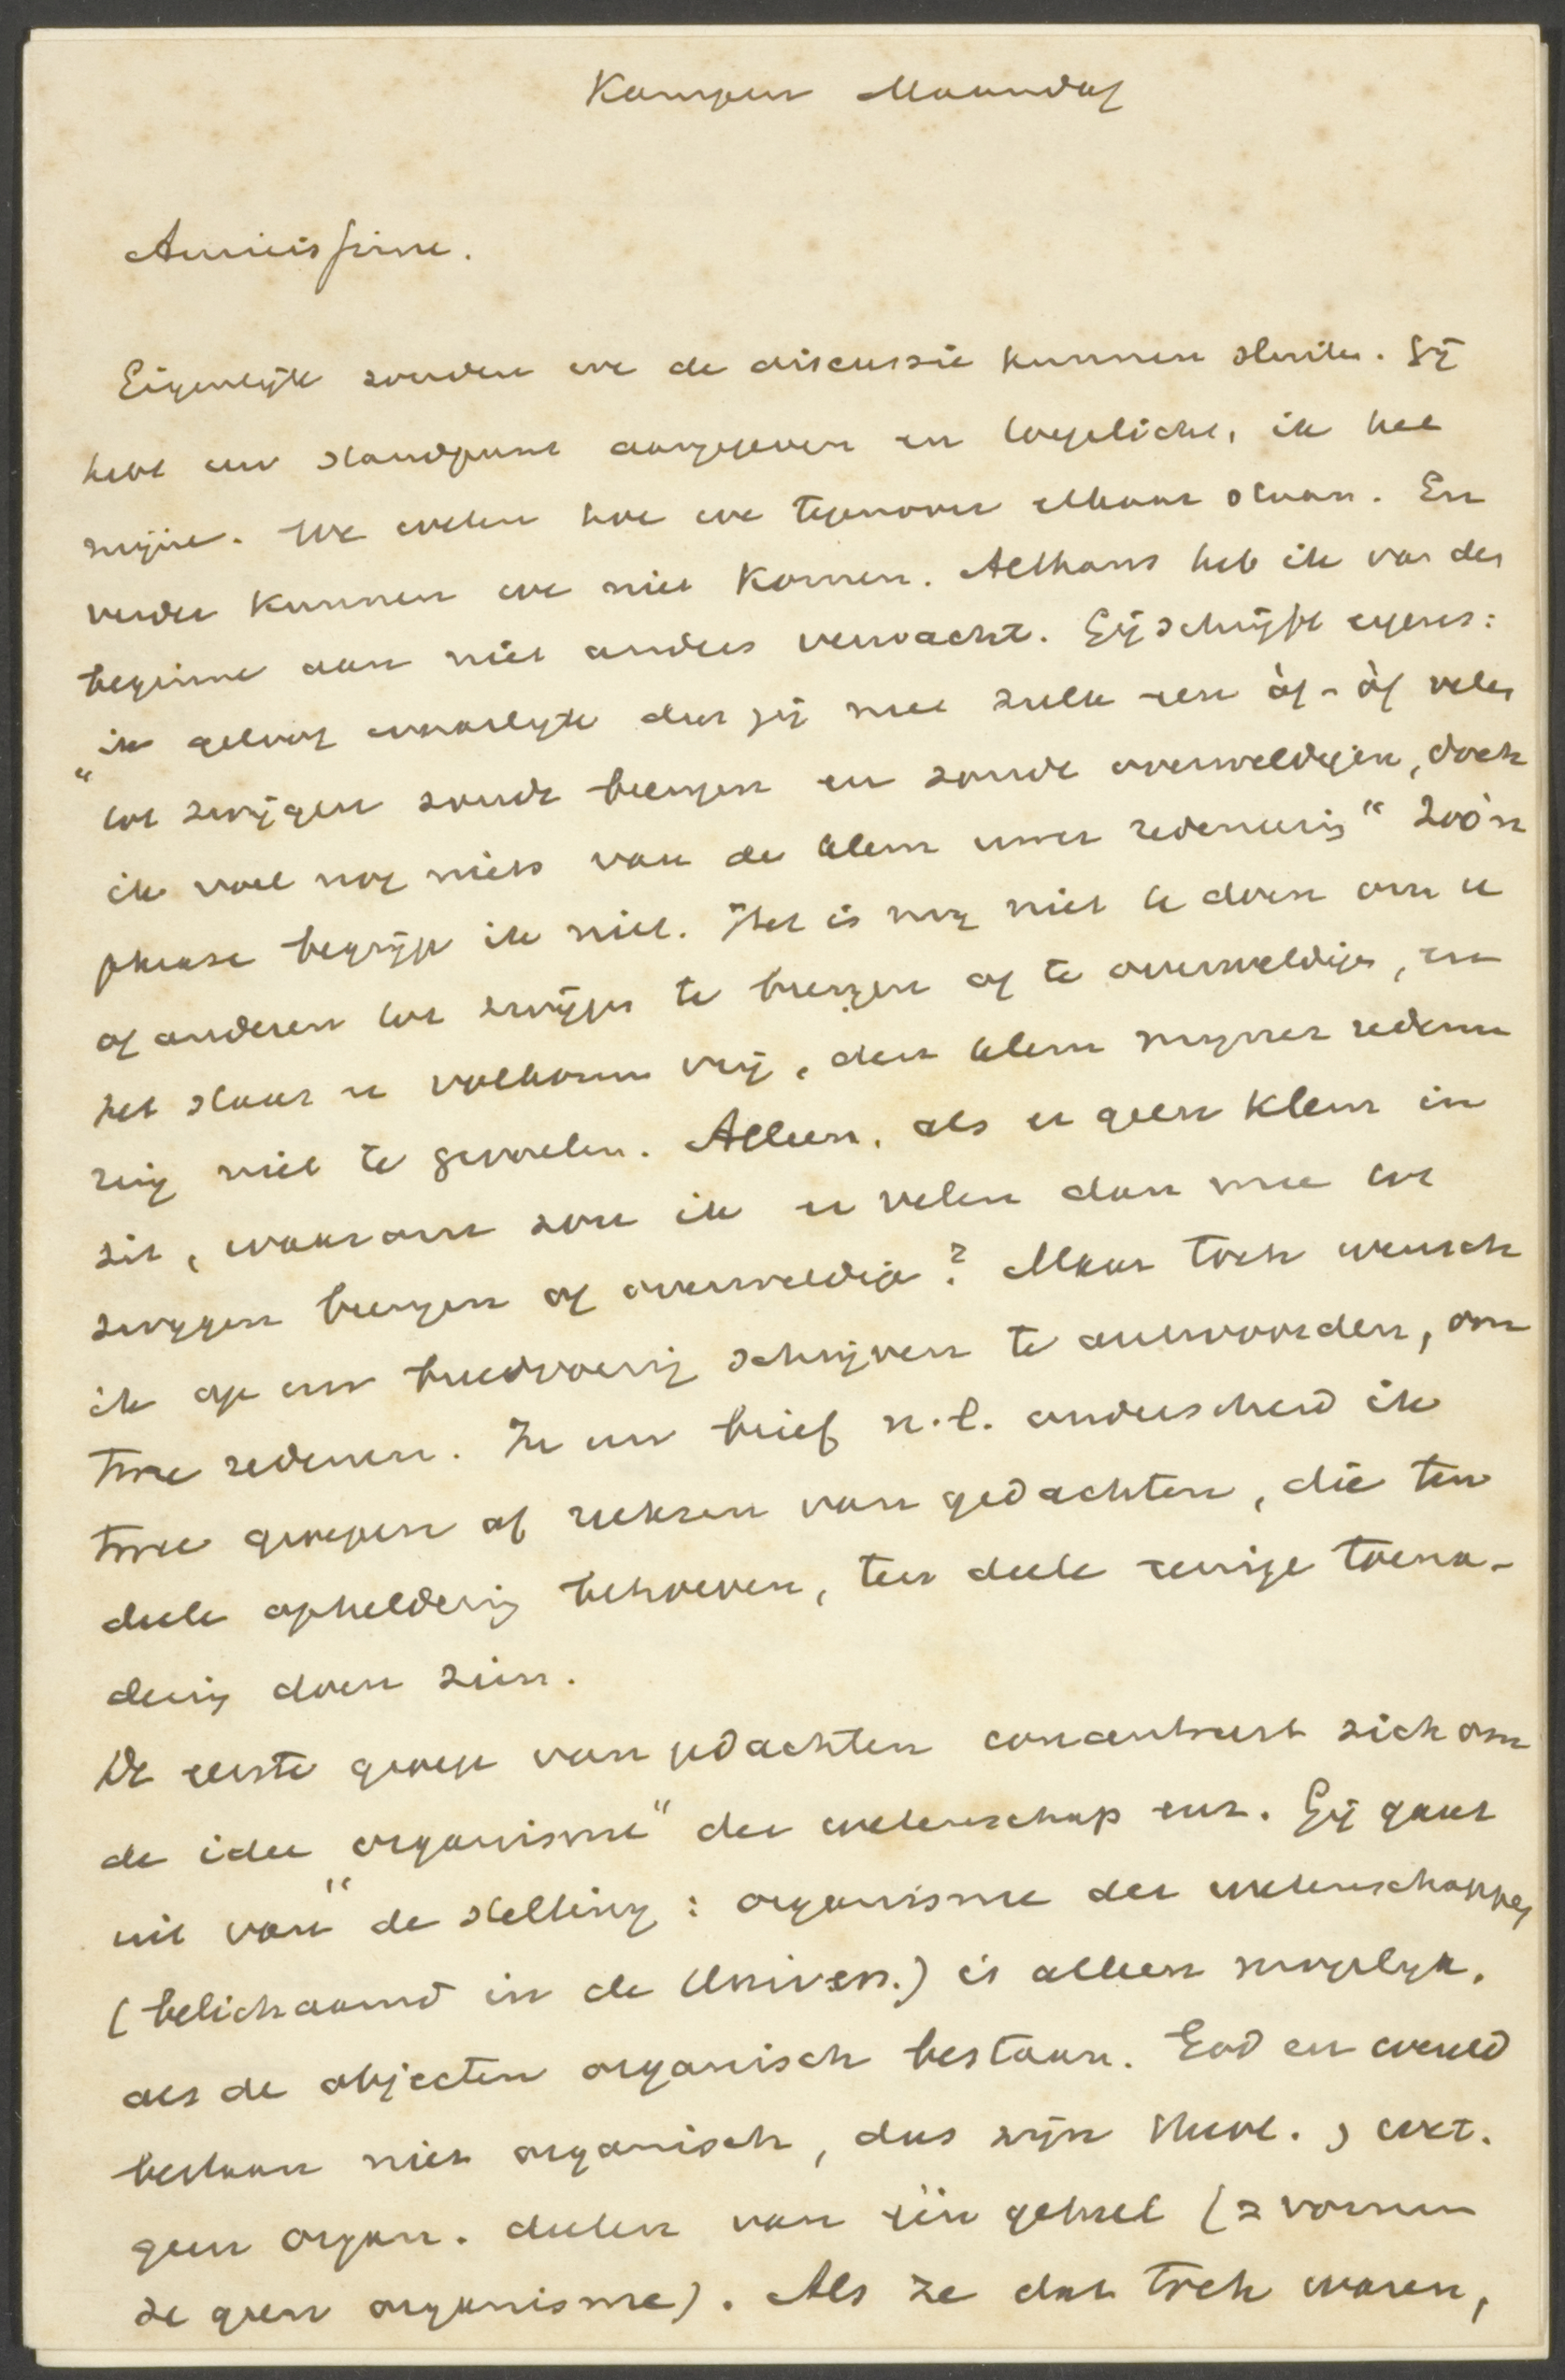 Kampen Maandag
Amicissime.
Eigenlijk zouden we de discussie kunnen sluiten. Gij
hebt uw standpunt aangegeven en toegelicht, ik het
mijne. We weten hoe we tegenover elkaar staan. En
verder kunnen we niet komen. Althans heb ik van den
beginne aan niet anders verwacht. Gij schrijft ergens:
"ik geloof waarlijk dat gij met zulk een òf-òf velen
tot zwijgen zoudt brengen en zoudt overweldigen, doch
ik voel nog niets van de klem uwer redeneering" Zoo'n
phrase begrijp ik niet. Het is mij niet te doen om u
of anderen tot zwijgen te brengen of te overweldigen, en
het staat u volkomen vrij, den klem mijner redenee
ring niet te gevoelen. Alleen, als er geen klem in
zit, waarom zou ik er velen dan mee tot
zwijgen brengen of overweldigen? Maar toch wensch
ik op uw breedvoerig schrijven te antwoorden, om
twee redenen. In uw brief n.l. onderscheid ik
twee groepen of reeksen van gedachten, die ten
deele opheldering behoeven, ten deele eenige toena-
dering doen zien.
De eerste groep van gedachten concentreert zich om
de idee "organisme" der wetenschap enz. Gij gaat
uit van de stelling: organisme der wetenschappen
(belichaamd in de Univers.) is alleen mogelijk,
als de objecten organisch bestaan. God en wereld
bestaan niet organisch, dus zijn theol. & wet.
geen organ. deelen van één geheel (= vormen
ze geen organisme). Als ze dat toch waren,